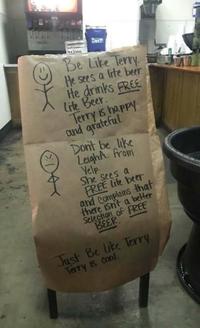 Be Like Terry.
He sees a lite beer
He drinks FREE
Lite Beer.
Terry is happy
and grateful.
Don't be like
Leighth From
Yelp
She sees a
FREE lite beer
and complains that
there isn't a better
selection of FREE
BEER.
Just Be like Terry
Terry is cool.